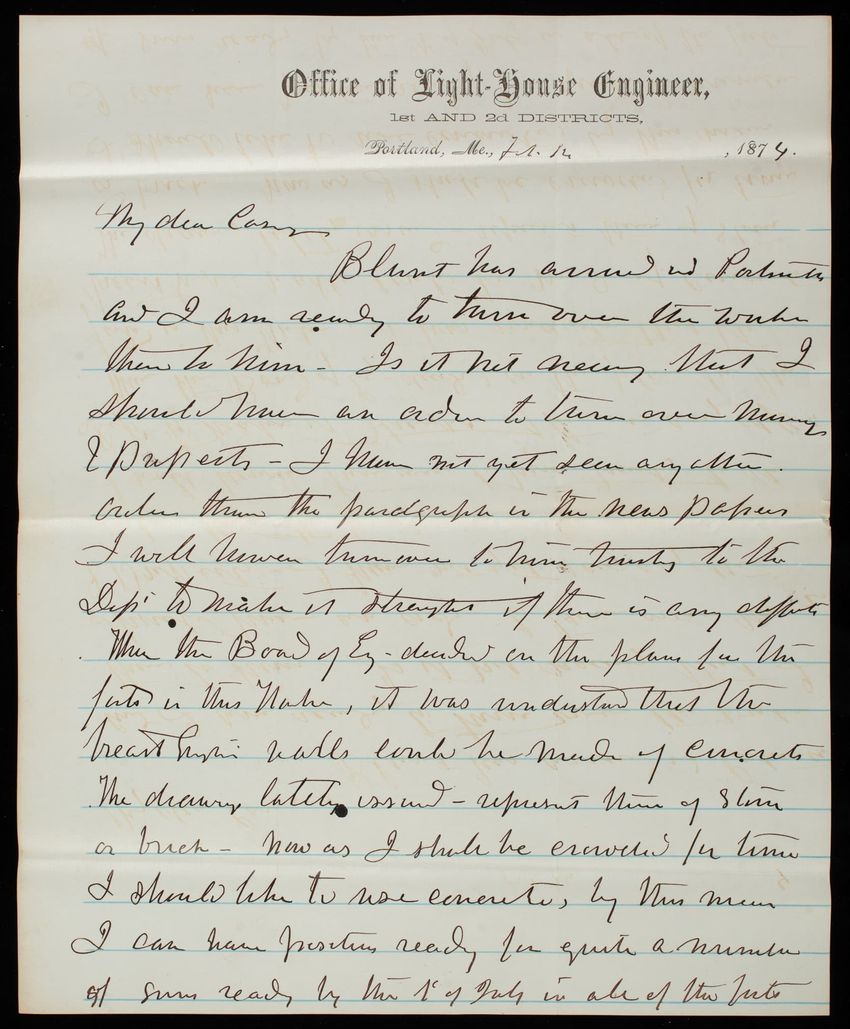 Office of Light-House Engineer,
1st AND 2d DISTRICTS,
Portland, Me., 1874.
My dear Casey
Blunt has arrived in Portsmouth
and I am ready to turn over the works
there to him - Is it not necessary that I
should have an order to turn over money
& property - I have not yet seen any other
order than the paragraph in the news papers
I will however turn over to him trusting to the
Dept to make it straight if there is any
When the Board of Eng - decided on the plans for the
forts in this Harbor, it was understood that the
breast height walls could be made of concrete
The drawings lately issued - represent them of stone
or brick - now as I shall be crowded for time
I should like to use concrete, by this means
I can have positions ready for quite a number
of guns ready by the 1st of July in all of the forts